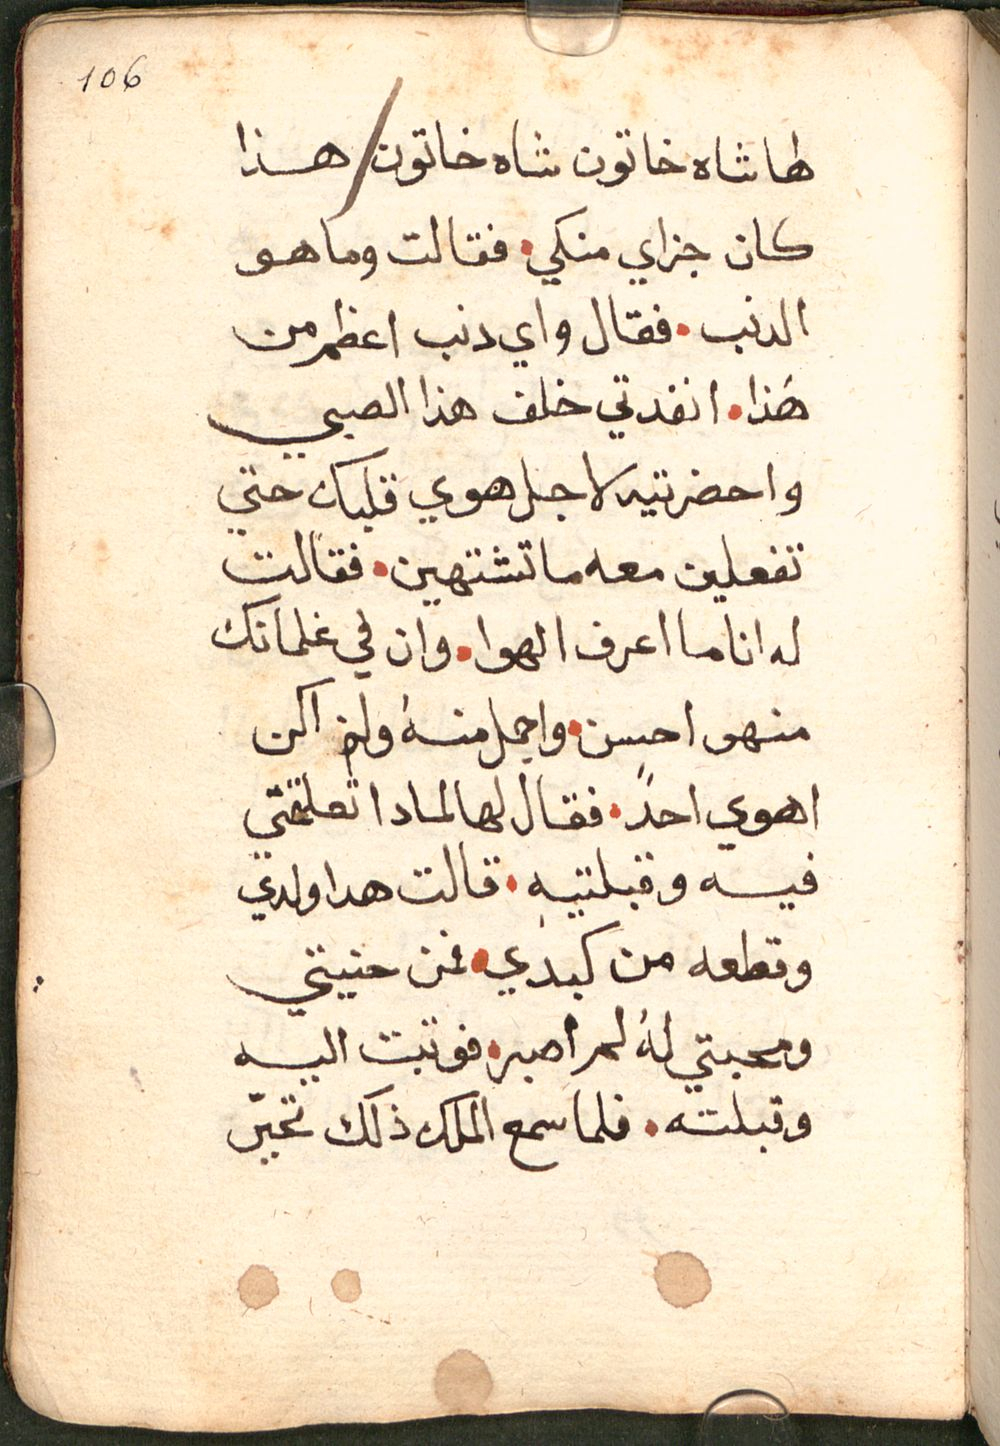 106
طها شاه خاتون شاه خاتون / هذا
كان جزاي منكي • فقالت وما هو
الدنب • فقال واي دنب اعظم من
هُذا • انفدتي خلف هذا الصبي
واحضرتيه لاجل هوي قلبك حتي
تفعلين معه ما تشتهين • فقالت
له انا ما اعرف الهوا • وان في غلمانك
منهو احسن • واجمل منهُ ولم اكن
اهوي احدً • فقال لها لمادا تعلقتي
فيه وقبلتيه • قالت هدا ولدي
وقطعه من كبدي • فمن حنيتي
ومحبتي لهُ لم اصبر • فوتبت اليه
وقبلته • فلما سمع الملك ذلك تحيّر